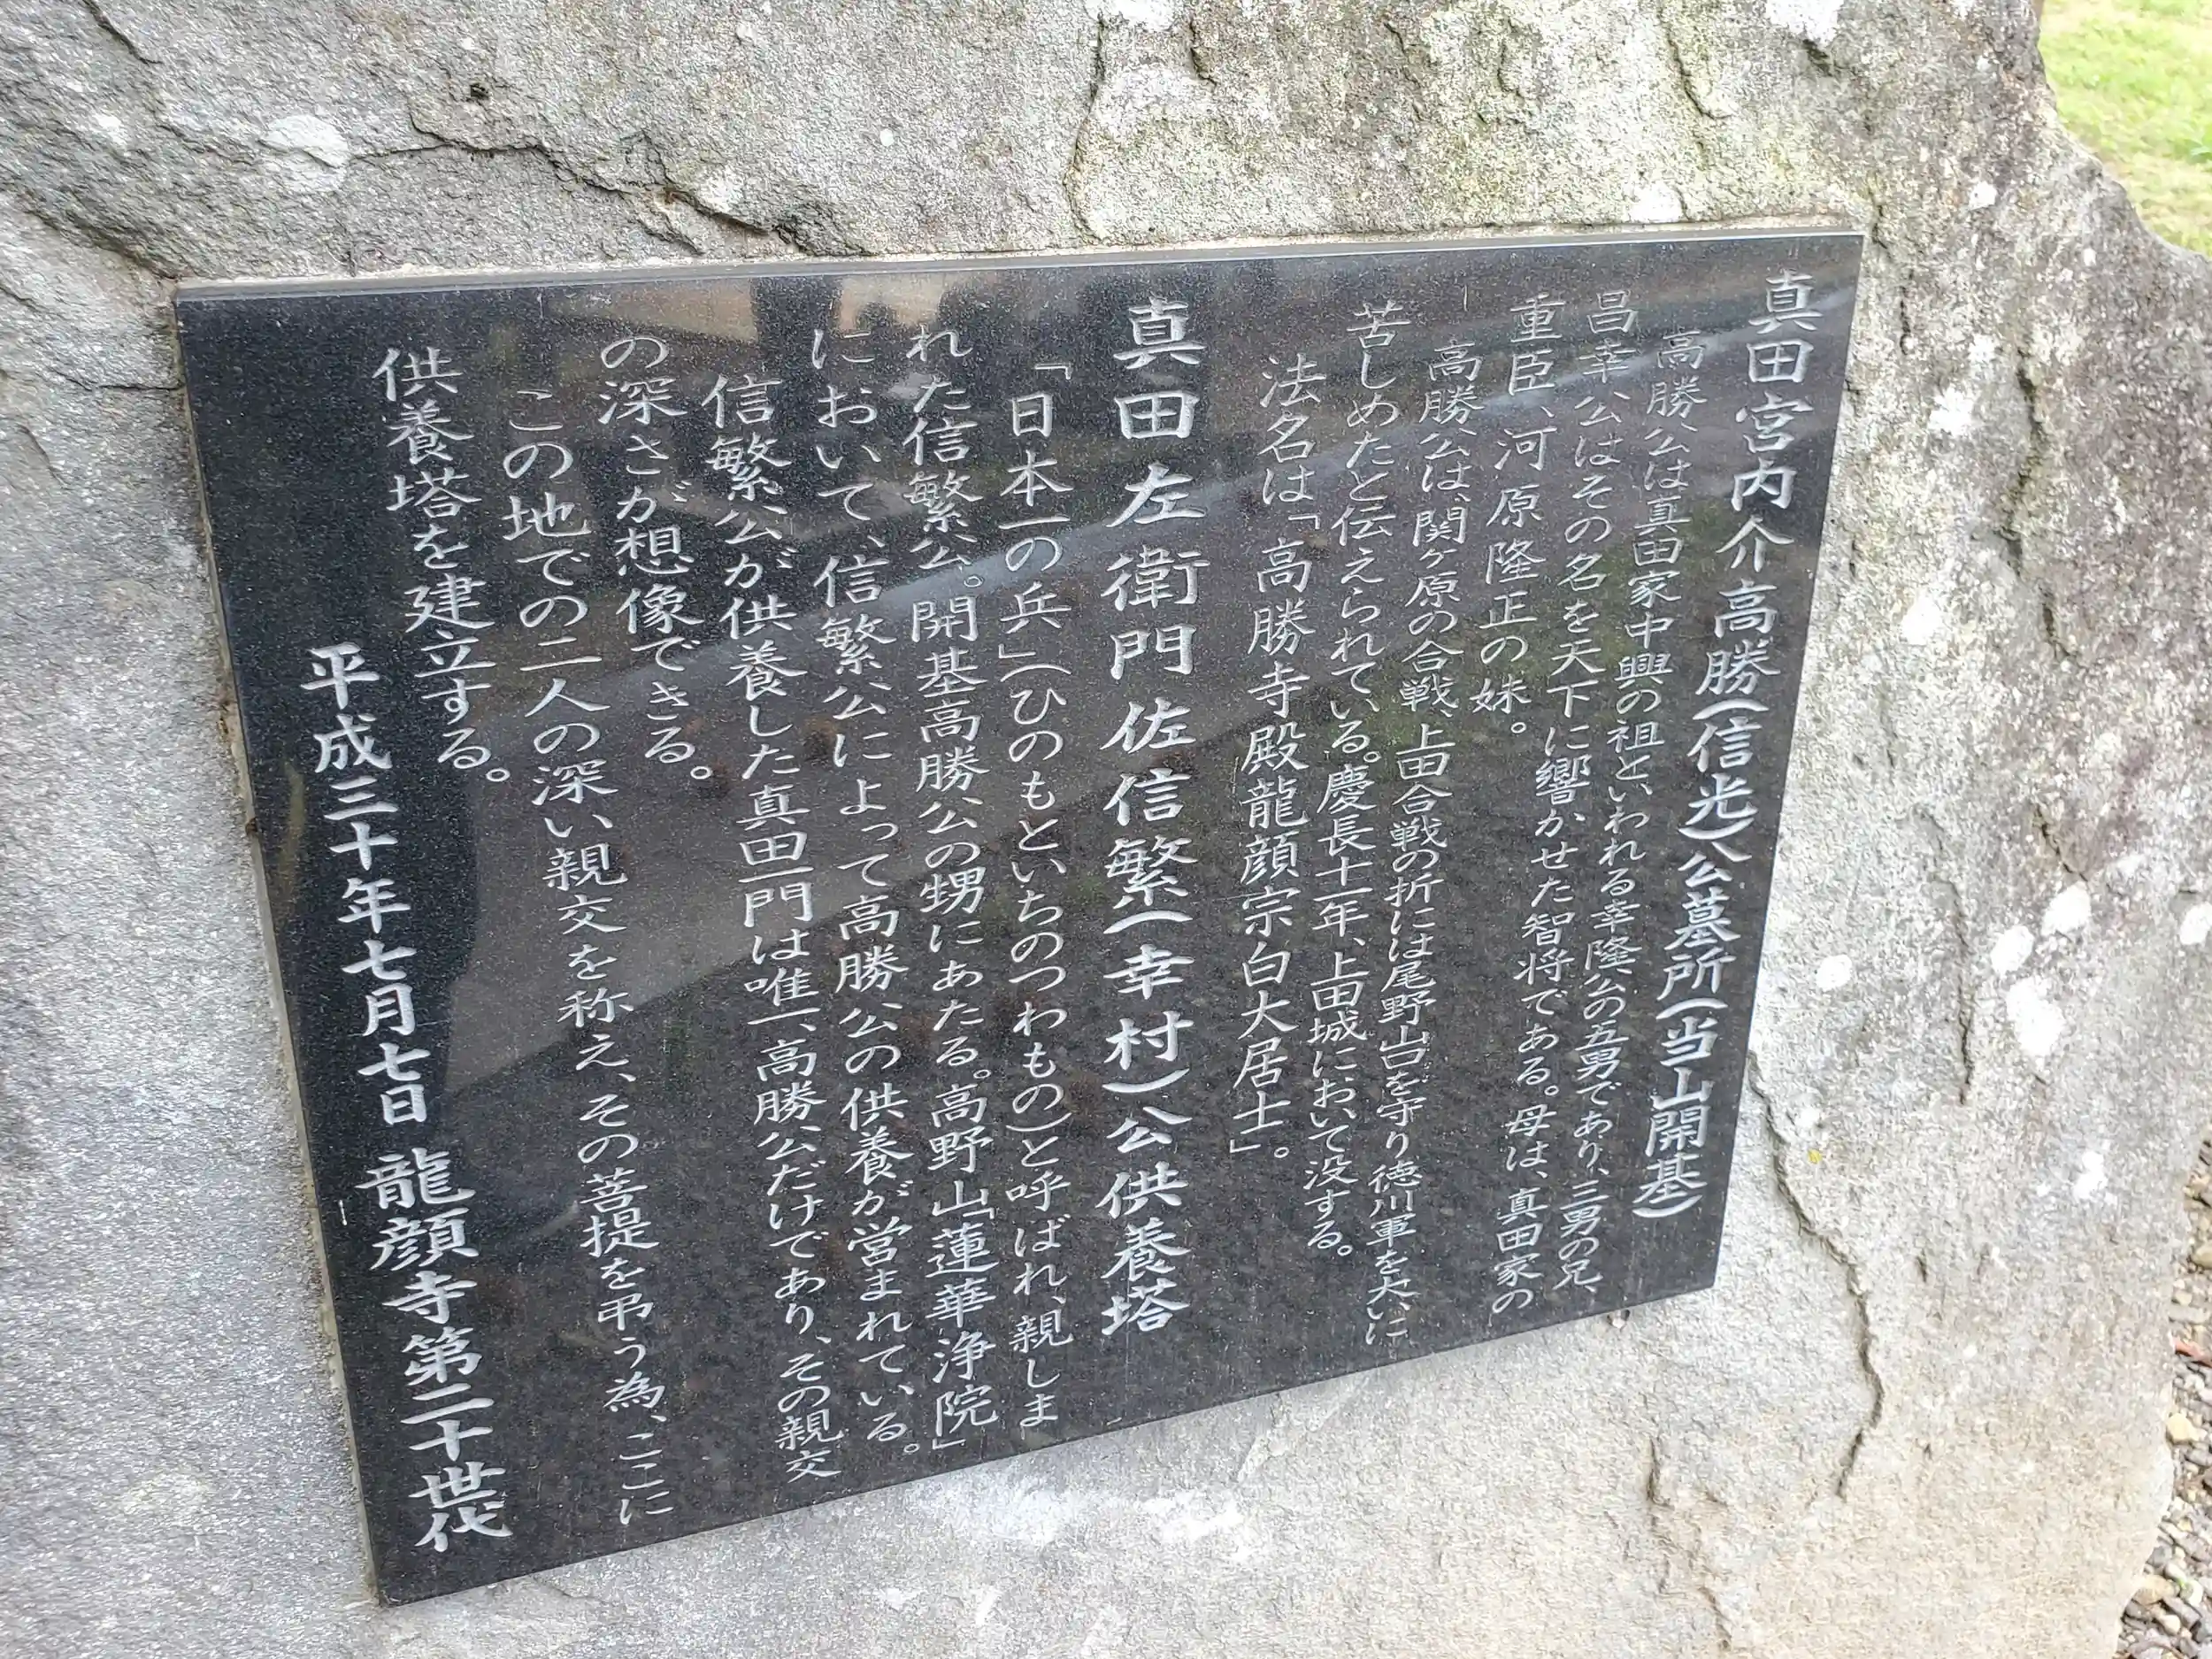 真田宮内介高勝(信光)公墓所(当山開基)
高勝公は真田家中興の祖といわれる幸隆公の五男であり、三男の兄、
昌幸公はその名を天下に響かせた智将である。母は、真田家の
重臣、河原隆正の妹。
高勝公は、関ヶ原の合戦、上田合戦の折には尾野山口を守り徳川軍を大いに
苦しめたと伝えられている。慶長十一年、上田城において没する。
法名は「高勝寺殿龍顔宗白大居士」。
真田左衛門佐信繁(幸村)公供養塔
「日本一の兵」(ひのもといちのつわもの)と呼ばれ、親しま
れた信繁公。開基高勝公の甥にあたる。高野山「蓮華浄院」
において、信繁公によって高勝公の供養が営まれている。
信繁公が供養した真田一門は唯一、高勝公だけであり、その親交
の深さが想像できる。
この地での二人の深い親交を称え、その菩提を弔う為、ここに
供養塔を建立する。
平成三十年七月七日 龍顔寺第二十世代